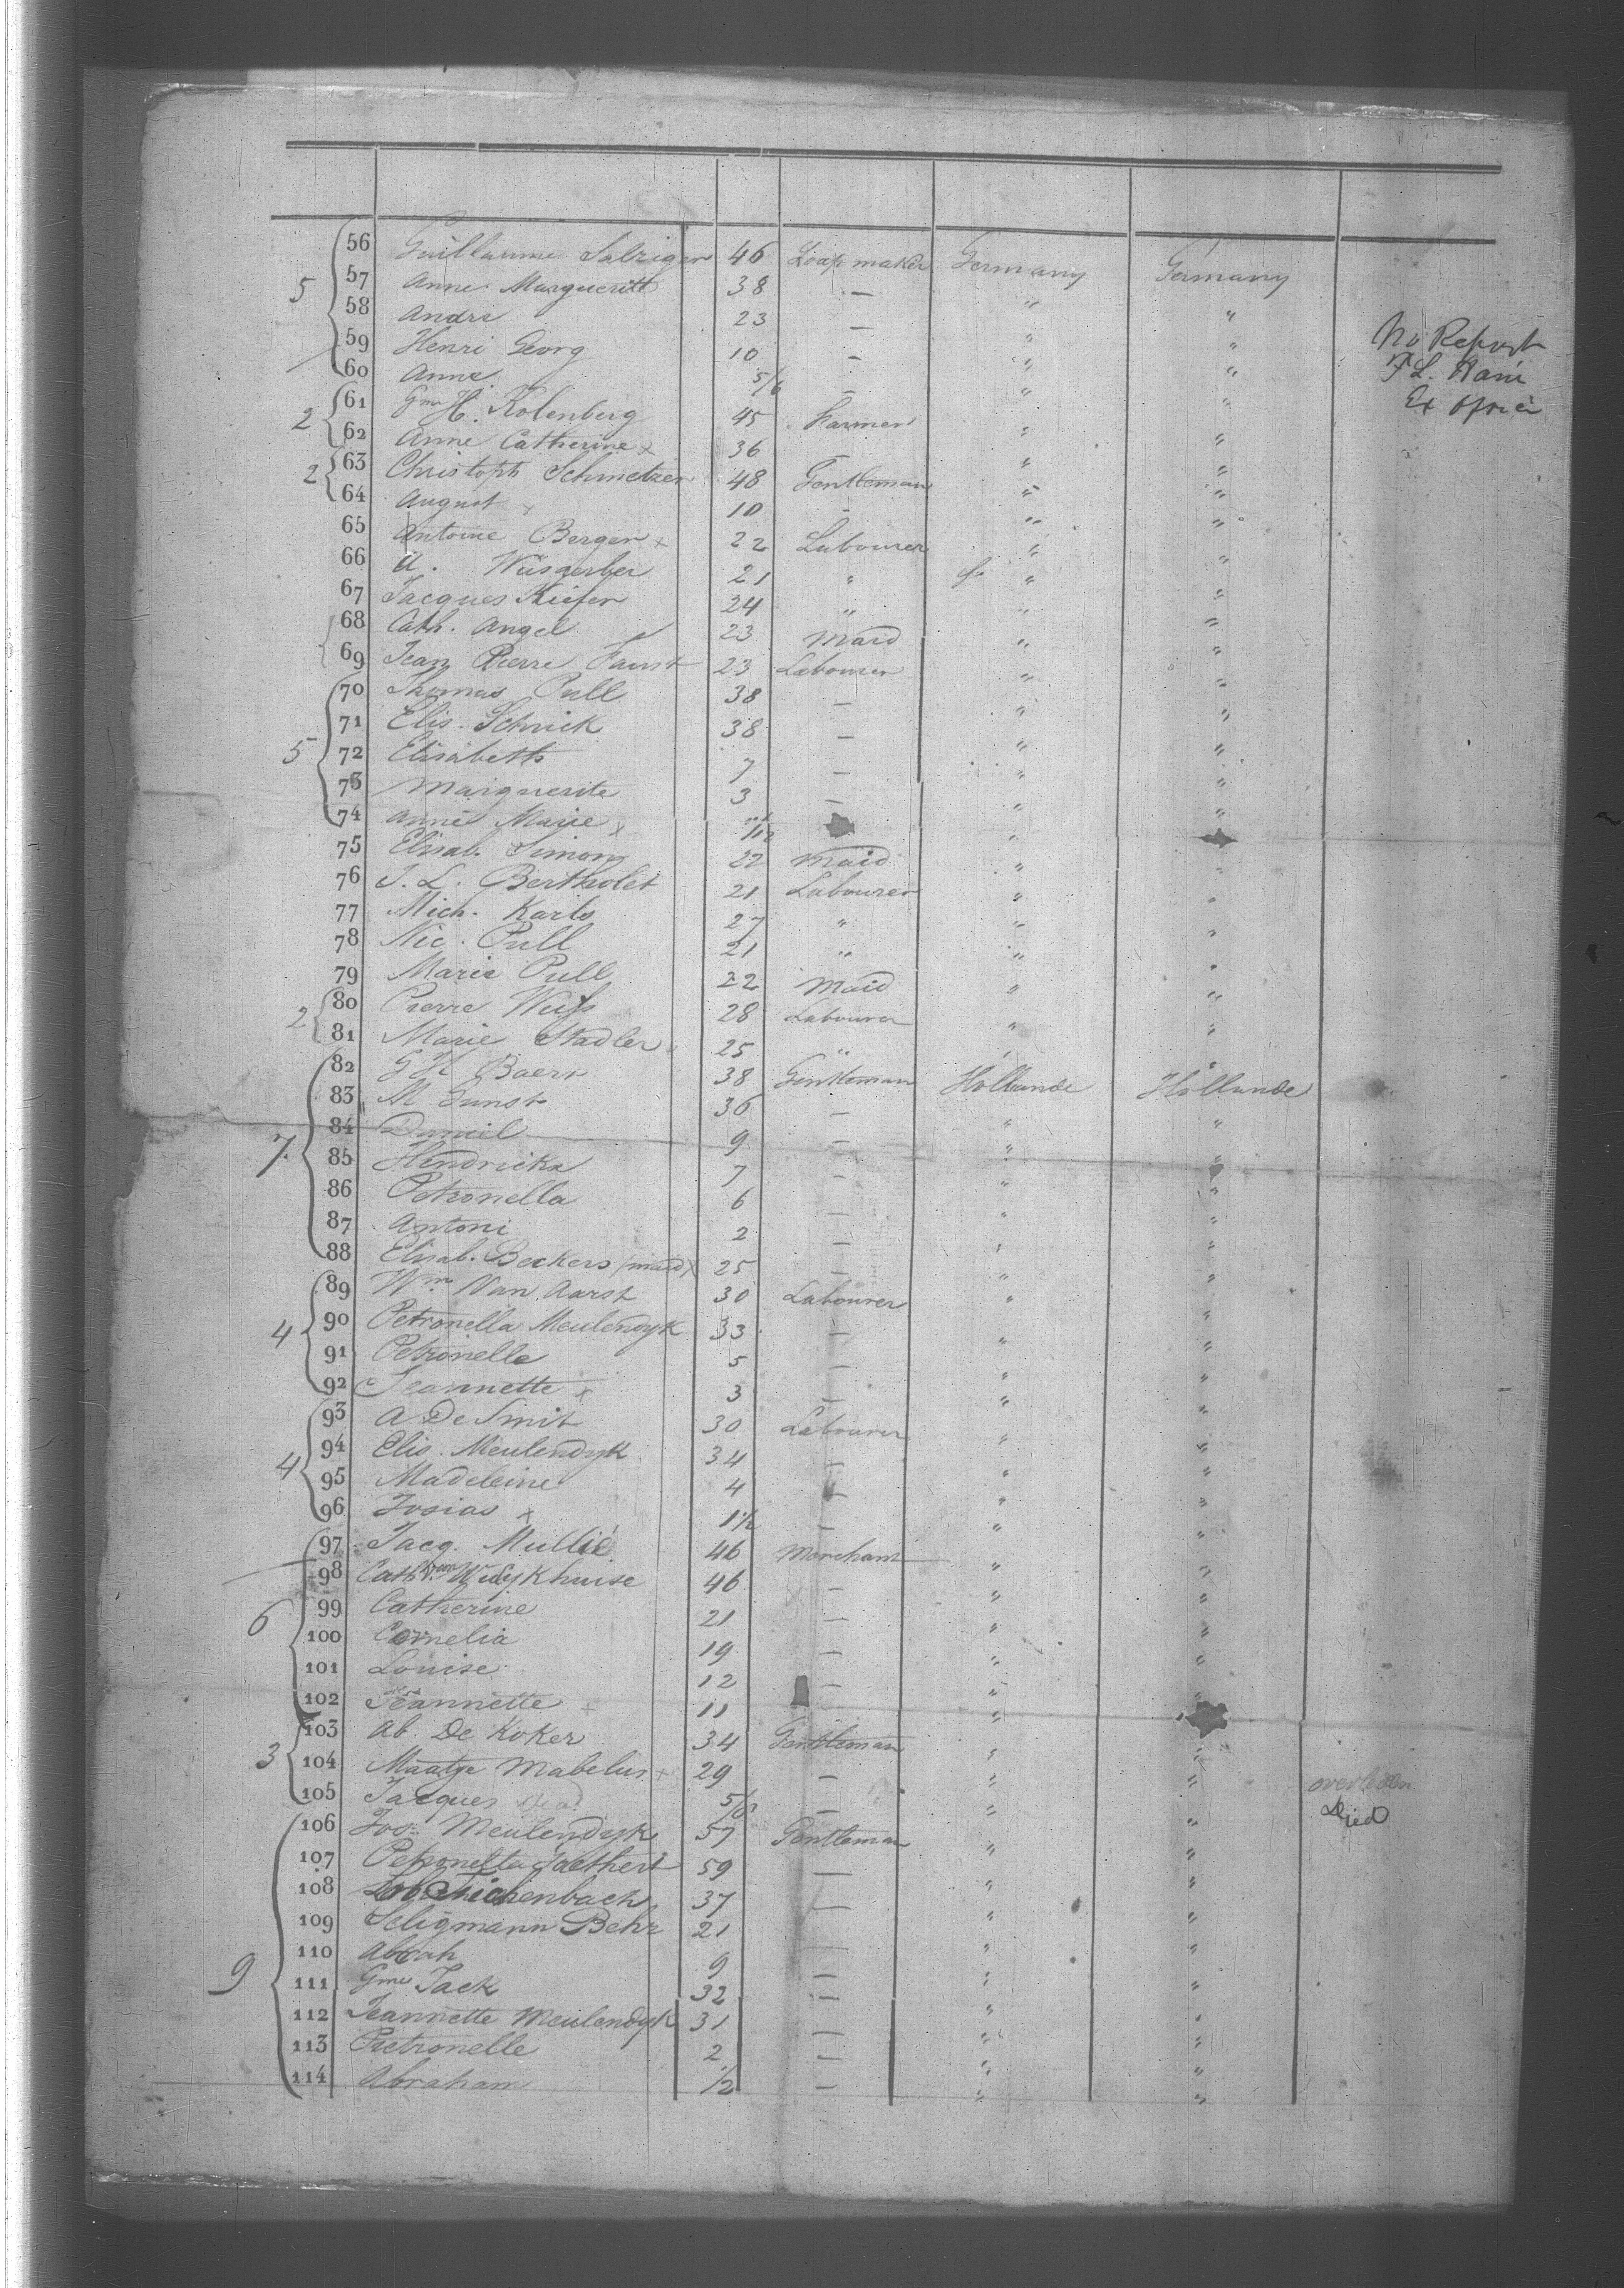 56 Guillaume Salziger 46 Soap maker Germany Germany
5 57 Anne Marguerite 38 — " "
58 Andre 23 — " "
59 Henri Georg 10 — " "
60 Anne 5/6 — " "
No Report
Ex
61 Gme H. Kolenberg 45 Farmer " "
2 62 Anne Catherine x 36 — " "
63 Christoph Schmetzer 48 Gentleman " "
2 64 August x 10 - " "
65 Antoine Berger x 22 Labourer " "
66 A. Wusgerber 21 " " "
67 Jacques Kiefer 24 " " "
68 Cath. Angel 23 Maid " "
69 Jean Pierre Faust 23 Labourer " "
70 Thomas Pull 38 — " "
71 Elis. Schrick 38 — " "
5 72 Elisabeth 7 — " "
73 Marguerite 3 — " "
74 Anne Marie x /12 " "
75 Elisab. Simon 22 Maid " "
76 J. L. Bertholet 21 Labourer " "
77 Mich. Karls 27 " " "
78 Nic. Pull 21 " " "
79 Marie Pull 22 Maid " "
80 Pierre Weiss 28 Labourer " "
2 81 Marie Stadler 25 " " "
82 G H Baers 38 Gentleman Hollande Hollande
83 M Junst 36 — " "
84 Daneil 9 — " "
7. 85 Hendricka 7 — " "
86 Petronella 6 — " "
87 Antoni 2 — " "
88 Elisab. Beckers (maid) x 25 — " "
89 Wm Van Aarst 30 Labourer " "
4 90 Petronella Meulendyk 33 — " "
91 Petronella 5 — " "
92 Jeannette x 3 — " "
93 A De Smit 30 Labourer " "
94 Elis. Meulendyk 34 — " "
4 95 Madeleine 4 — " "
96 Josias x 1 1/2 — " "
97 Jacq. Mullié 46 Merchant " "
98 Cath. van Wuykhuise 46 — " "
99 Catherine 21 — " "
6 100 Cornelia 19 — " "
101 Louise 12 — " "
102 Jeannette x 11 " "
103 Ab. De Koker 34 Gentleman " "
3 104 Maatje Mabelus x 29 — " " overleden
105 Jacques dead 5/6 — " " Died
106 Jos: Meulendyk 57 Gentleman " "
107 Petronella 59 — " "
108 37 — " "
109 Seligmann Behr 21 — " "
110 Abrah 9 — " "
9 111 Gme Jack 32 — " "
112 Jeannette Meulendyk 31 — " "
113 Pietronelle 2 — " "
114 Abraham 1/2 — " "